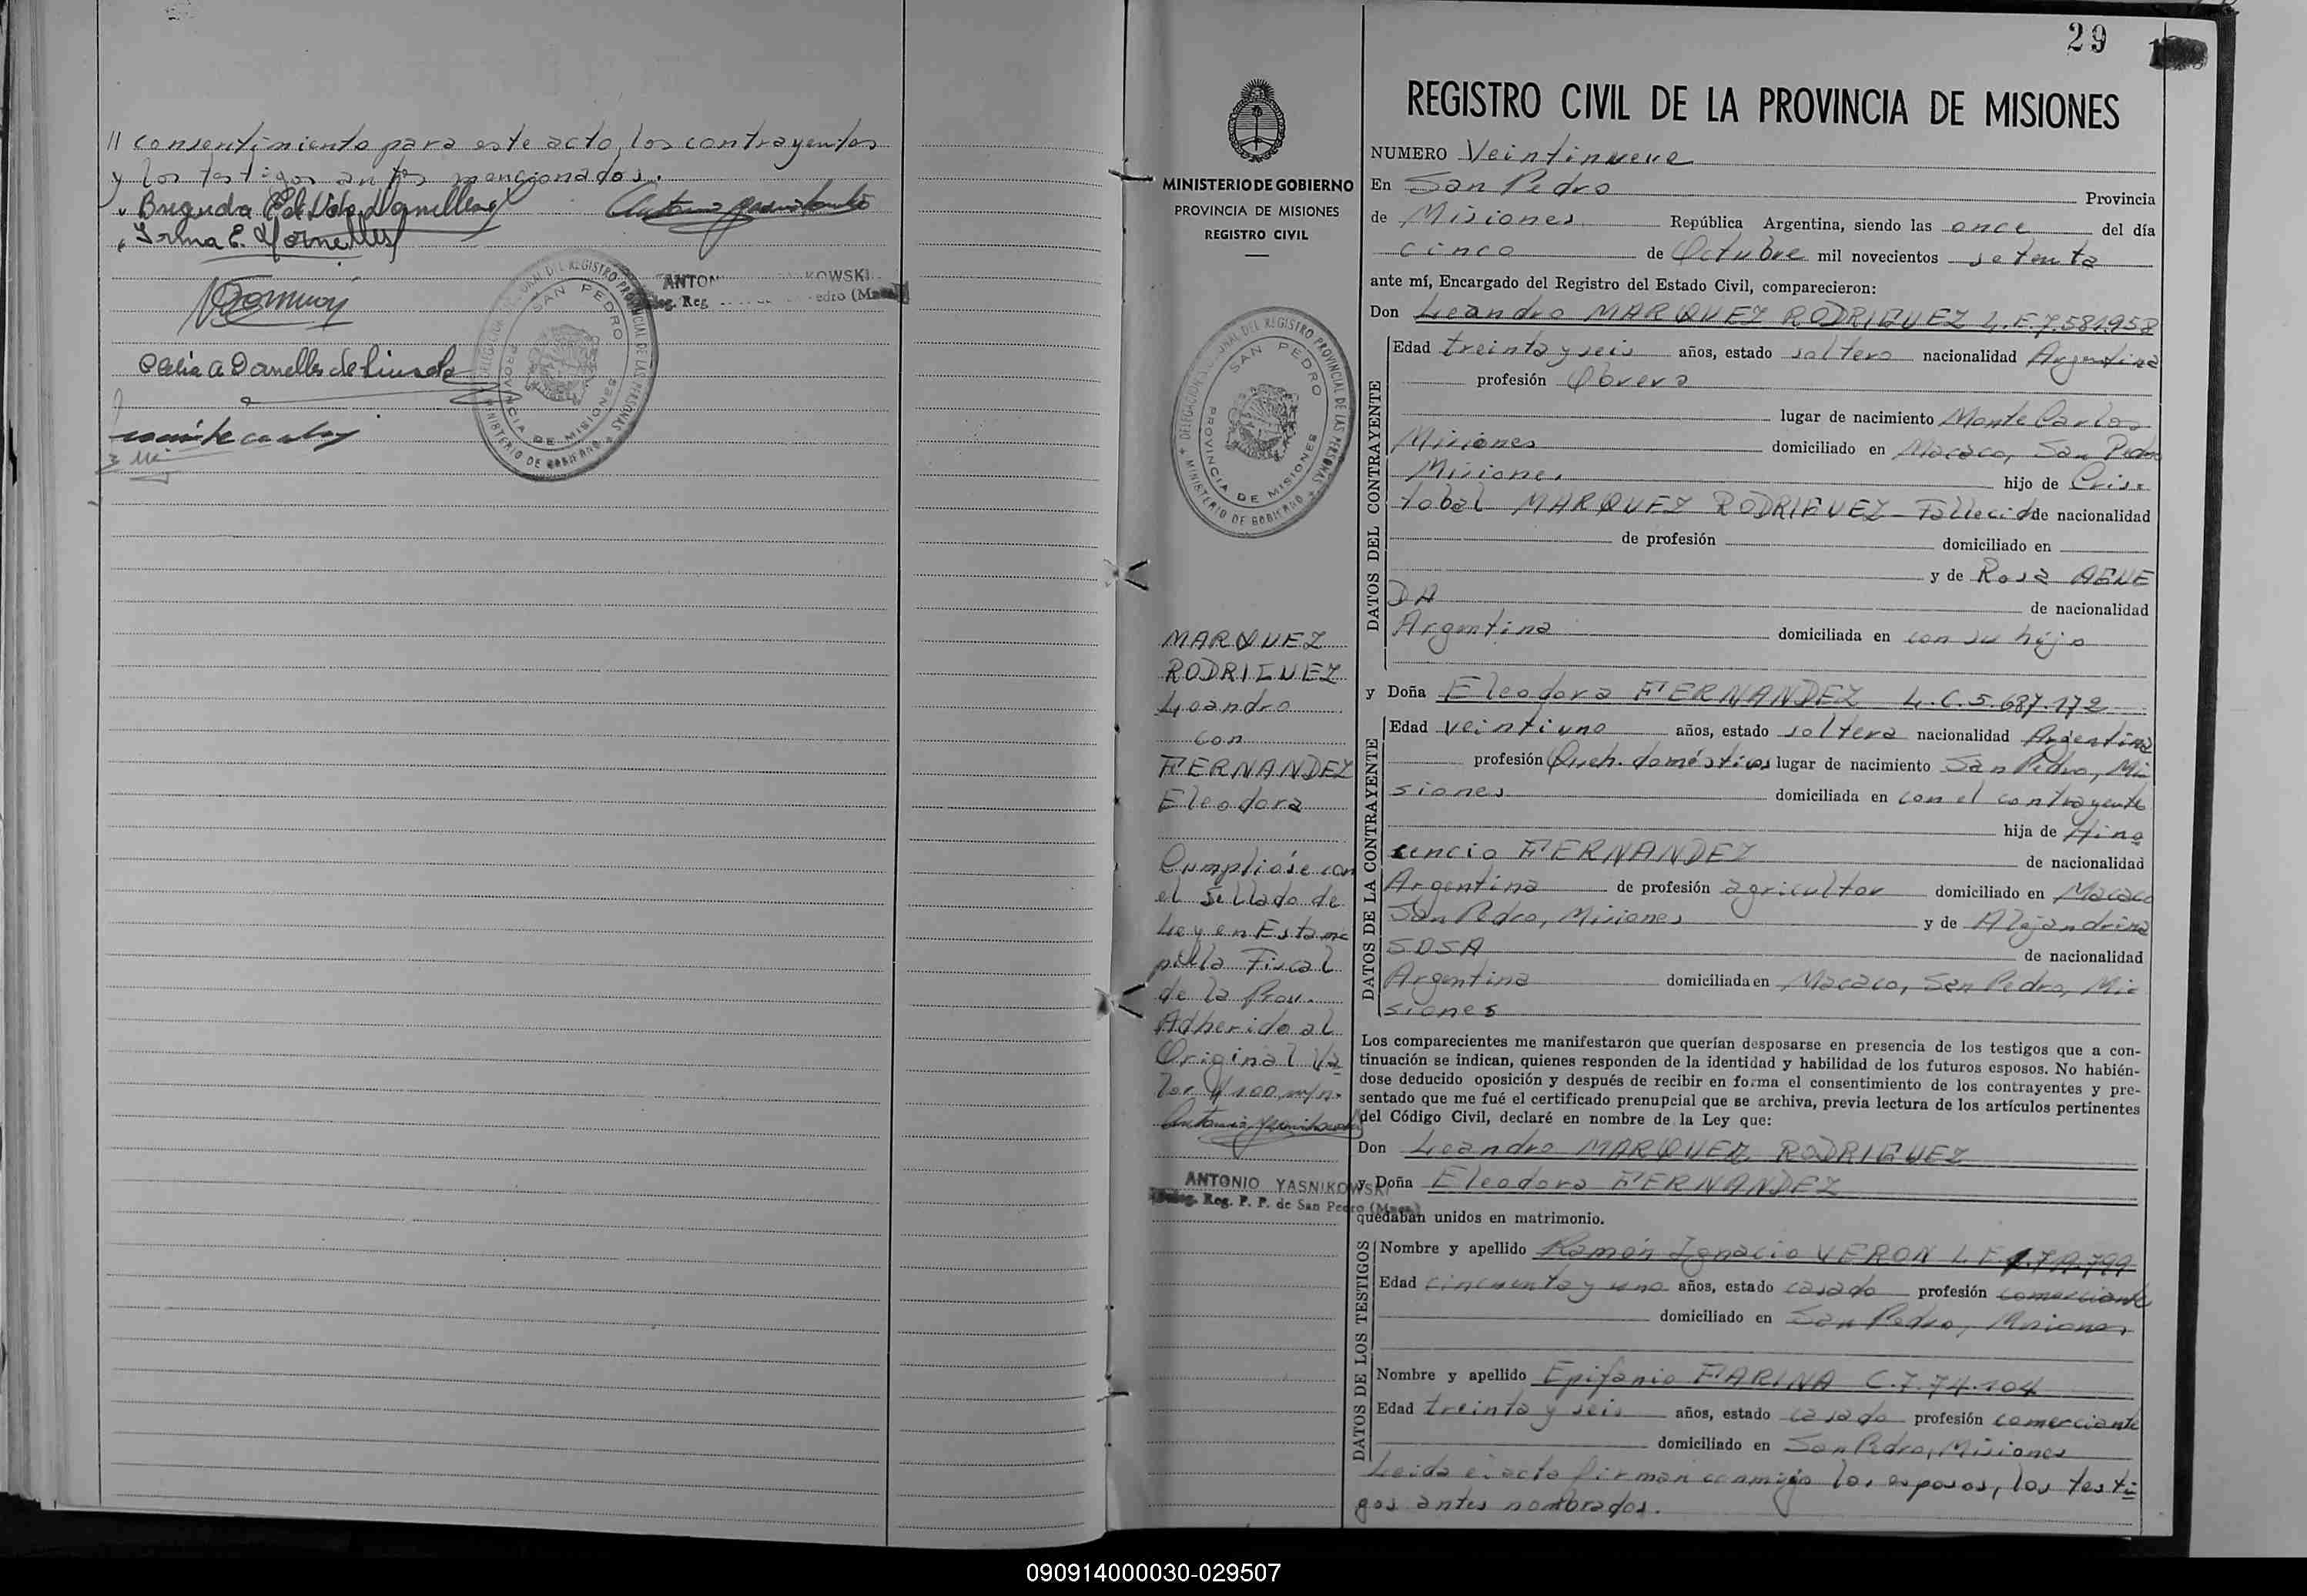 // consentimiento para este acto, los contrayentes
y los testigos antes mencionados.
Irma E. Dornelles
ANTON KOWSKI
Reg. edro (Mnes.)
DELEGACION REGISTRO PROVINCIAL DE LAS PERSONAS
SAN PEDRO
PROVINCIA DE MISIONES
MINISTERIO DE GOBIERNO
29
MINISTERIO DE GOBIERNO
PROVINCIA DE MISIONES
REGISTRO CIVIL
DELEGACION REGISTRO PROVINCIAL DE LAS PERSONAS
SAN PEDRO
PROVINCIA DE MISIONES
MINISTERIO DE GOBIERNO
MARQUEZ
RODRIGUEZ
Leandro
con
FERNANDEZ
Eleodora
Cumplióse con
el Sellado de
Ley en Estam
pilla Fiscal
de la Prov.
Adherido al
Original Va
lor $ 100 m/n.
ANTONIO YASNIKOWSKI
Deleg. Reg. P. P. de San Pedro (Mnes.)
REGISTRO CIVIL DE LA PROVINCIA DE MISIONES
NUMERO Veintinueve
En San Pedro Provincia
de Misiones República Argentina, siendo las once del día
cinco de Octubre mil novecientos setenta
ante mí, Encargado del Registro del Estado Civil, comparecieron:
Don Leandro MARQUEZ RODRIGUEZ L.E.7.581.958
DATOS DEL CONTRAYENTE
Edad treinta y seis años, estado soltero nacionalidad Argentina
profesión Obrero
lugar de nacimiento Monte Carlos
Misiones domiciliado en Macaco, San Pedro
Misiones hijo de Cris-
tobal MARQUEZ RODRIGUEZ - Fallecido de nacionalidad
de profesión domiciliado en
y de Rosa AGUE
DA de nacionalidad
Argentina domiciliada en con su hijo
y Doña Eleodora FERNANDEZ L.C.5.687.172
DATOS DE LA CONTRAYENTE
Edad veintiuno años, estado soltera nacionalidad Argentina
profesión Queh. domésticos lugar de nacimiento San Pedro, Mi
siones domiciliada en con el contrayente
hija de Hino
cencio FERNANDEZ de nacionalidad
Argentina de profesión agricultor domiciliado en Macaco
San Pedro, Misiones y de Alejandrina
SOSA de nacionalidad
Argentina domiciliada en Macaco, San Pedro, Mi-
siones
Los comparecientes me manifestaron que querían desposarse en presencia de los testigos que a con-
tinuación se indican, quienes responden de la identidad y habilidad de los futuros esposos. No habién-
dose deducido oposición y después de recibir en forma el consentimiento de los contrayentes y pre-
sentado que me fué el certificado prenupcial que se archiva, previa lectura de los artículos pertinentes
del Código Civil, declaré en nombre de la Ley que:
Don Leandro MARQUEZ RODRIGUEZ
y Doña Eleodora FERNANDEZ
quedaban unidos en matrimonio.
DATOS DE LOS TESTIGOS
Nombre y apellido Ramón Ignacio VERON L.E.
Edad cincuenta y uno años, estado casado profesión comerciante
domiciliado en San Pedro, Misiones
Nombre y apellido Epifanio FARINA C.7.74.104
Edad treinta y seis años, estado casado profesión comerciante
domiciliado en San Pedro, Misiones
Leida el acta firman conmigo los esposos, los testi
gos antes nombrados.
090914000030-029507